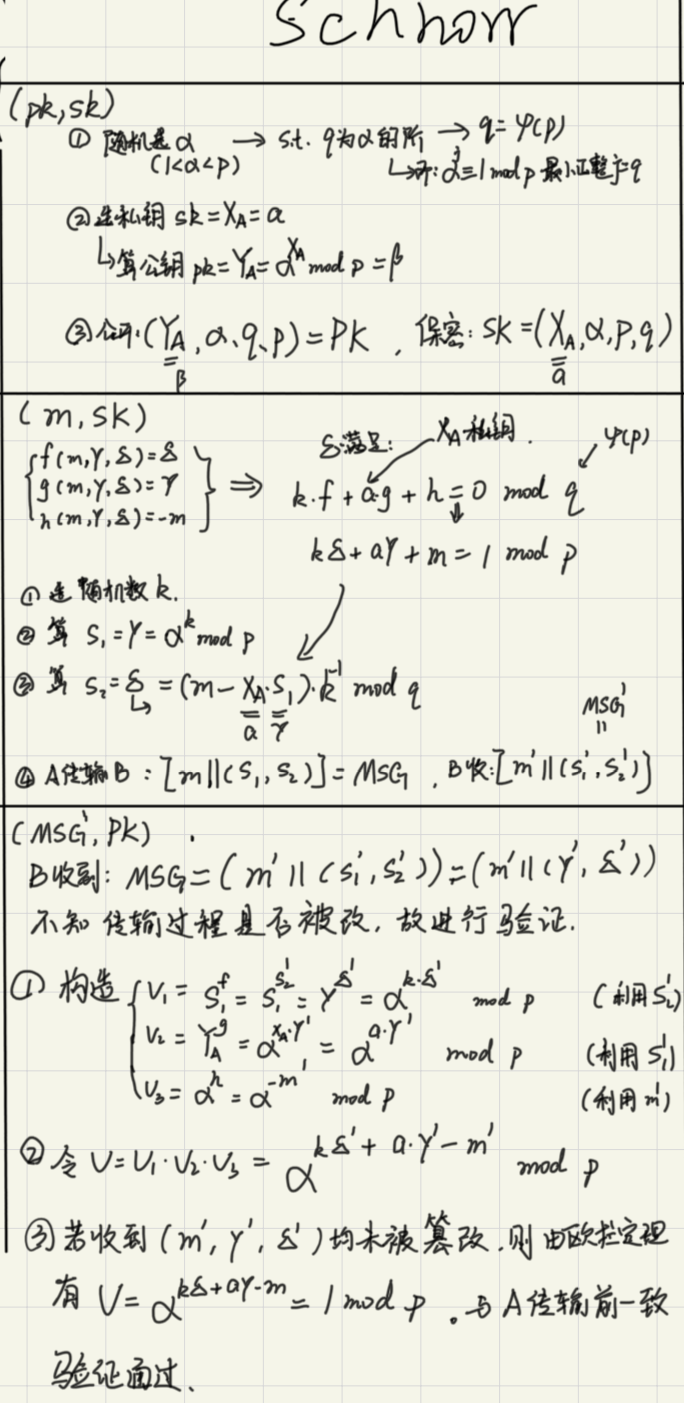 Schnorr
(pk,sk)
① 随机选α → s.t. q为α的阶 → q=φ(p)
(1<α<p) ↳即: α^q≡1 mod p 最小正整数=q
②选私钥 sk=X_A=a
↳算公钥 pk=Y_A=α^{X_A} mod p=β
③公开:(Y_A,α、q、p)=PK , 保密: SK=(X_A,α,p,q)
β a
(m,SK)
f(m,γ,δ)=δ
g(m,γ,δ)=γ
h(m,γ,δ)=-m
⇒
δ满足: X_A私钥. φ(p)
k·f+a·g+h=0 mod q
kδ+aγ+m=1 mod p
① 选随机数k.
② 算 S₁=γ=α^k mod p
③ 算 S₂=δ=(m-X_A·S₁)·k^{-1} mod q
a γ
MSG'
④ A传输B:[m||(S₁,S₂)]=MSG , B收:[m'||(S₁',S₂')]
(MSG',PK) .
B收到: MSG=(m'||(S₁',S₂'))=(m'||(γ',δ'))
不知传输过程是否被改,故进行验证.
① 构造 V₁=S₁^f=S₁^{S₂'}=γ^{δ'}=α^{k·δ'} mod p (利用S₂')
V₂=Y_A^g=α^{X_A·γ'}=α^{a·γ'} mod p (利用S₁')
V₃=α^h=α^{-m'} mod p (利用m')
② 令 V=V₁·V₂·V₃=α^{kδ'+a·γ'-m'} mod p
③若收到(m',γ',δ')均未被篡改.则由欧拉定理
有 V=α^{kδ+aγ-m}=1 mod p 。与A传输前一致
验证通过.